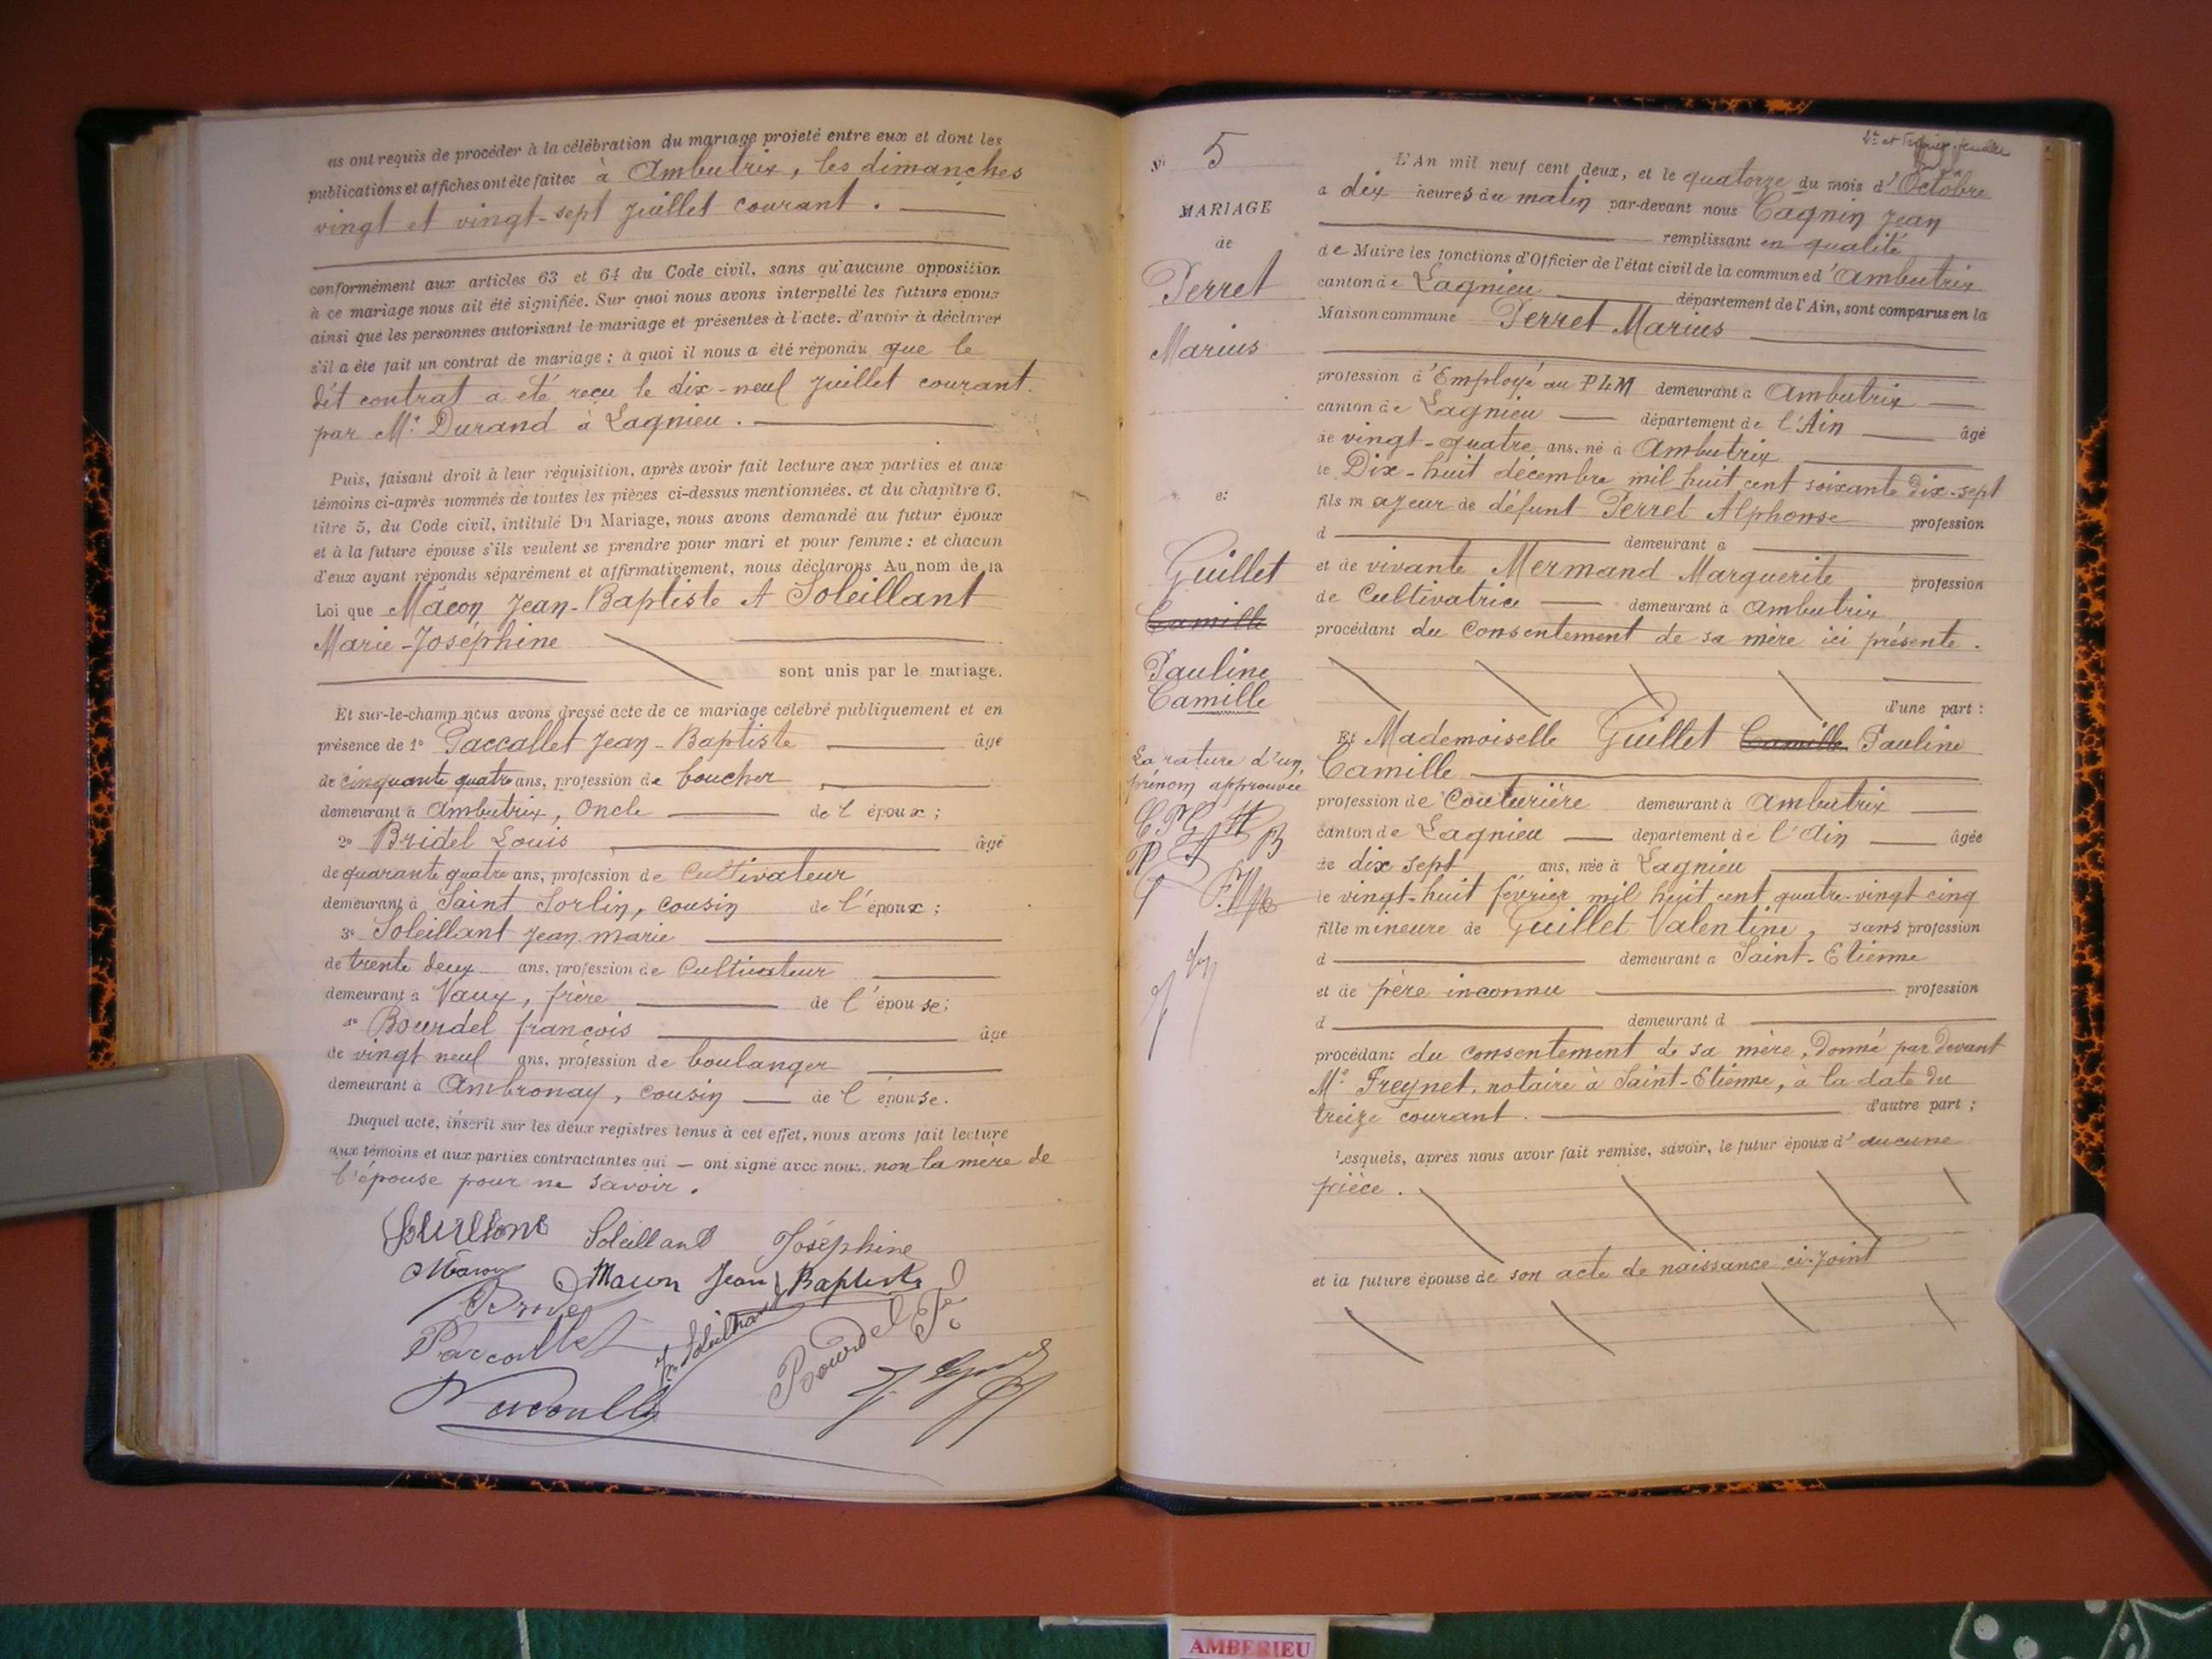 us ont requis de procéder à la célébration du mariage projeté entre eux et dont les
publications et affiches ont été faites à Ambutrix, les dimanches
vingt et vingt-sept Juillet courant.
conformément aux articles 63 et 64 du Code civil, sans qu'aucune opposition
à ce mariage nous ait été signifiée. Sur quoi nous avons interpellé les futurs époux
ainsi que les personnes autorisant le mariage et présentes à l'acte, d'avoir à déclarer
s'il a été fait un contrat de mariage ; à quoi il nous a été répondu que le
dit contrat a été reçu le dix-neuf Juillet courant.
par Me Durand à Lagnieu.
Puis, faisant droit à leur réquisition, après avoir fait lecture aux parties et aux
témoins ci-après nommés de toutes les pièces ci-dessus mentionnées, et du chapitre 6,
titre 5, du Code civil, intitulé Du Mariage, nous avons demandé au futur époux
et à la future épouse s'ils veulent se prendre pour mari et pour femme : et chacun
d'eux ayant répondu séparément et affirmativement, nous déclarons Au nom de la
Loi que Mâcon Jean-Baptiste et Soleillant
Marie-Joséphine
sont unis par le mariage.
Et sur-le-champ nous avons dressé acte de ce mariage célébré publiquement et en
présence de 1° Paccallet Jean-Baptiste âgé
de cinquante quatre ans, profession de boucher
demeurant à Ambutrix, Oncle de l'époux ;
2° Bridel Louis âgé
de quarante quatre ans, profession de Cultivateur
demeurant à Saint Sorlin, cousin de l'époux ;
3° Soleillant Jean-marie
de trente deux ans, profession de Cultivateur
demeurant à Vaux, frère de l'épouse ;
4° Bourdel françois âgé
de vingt neuf ans, profession de boulanger
demeurant à Ambronay, cousin de l'épouse.
Duquel acte, inscrit sur les deux registres tenus à cet effet, nous avons fait lecture
aux témoins et aux parties contractantes qui — ont signé avec nous, non la mère de
l'épouse pour ne savoir.
Soleillant Joséphine
Macon Macon Jean Baptiste
Bridel
Paccallet Jm Soleillant Bourdel
N° 5
MARIAGE
de
Perret
Marius
et
Guillet
Camille
Pauline
Camille
La rature d'un
prénom approuvée
L'An mil neuf cent deux, et le quatorze du mois d'Octobre
à dix heures du matin par-devant nous Cagnin Jean
remplissant en qualité
de Maire les fonctions d'Officier de l'état civil de la commune d'Ambutrix
canton de Lagnieu département de l'Ain, sont comparus en la
Maison commune Perret Marius
profession d'Employé au PLM demeurant à Ambutrix
canton de Lagnieu département de l'Ain âgé
de vingt-quatre ans, né à Ambutrix
le Dix-huit décembre mil huit cent soixante dix-sept
fils majeur de défunt Perret Alphonse profession
d demeurant à
et de vivante Mermand Marguerite profession
de Cultivatrice demeurant à Ambutrix
procédant du Consentement de sa mère ici présente.
d'une part :
Et Mademoiselle Guillet Camille Pauline
Camille
profession de Couturière demeurant à Ambutrix
canton de Lagnieu département de l'Ain âgée
de dix sept ans, née à Lagnieu
le vingt-huit février mil huit cent quatre-vingt cinq
fille mineure de Guillet Valentine, sans profession
d demeurant à Saint-Etienne
et de père inconnu profession
d demeurant à
procédant du consentement de sa mère, donné par devant
Me Freynet, notaire à Saint-Etienne, à la date du
treize courant. d'autre part ;
Lesquels, après nous avoir fait remise, savoir, le futur époux d'aucune
pièce.
et la future épouse de son acte de naissance ci-joint
AMBERIEU